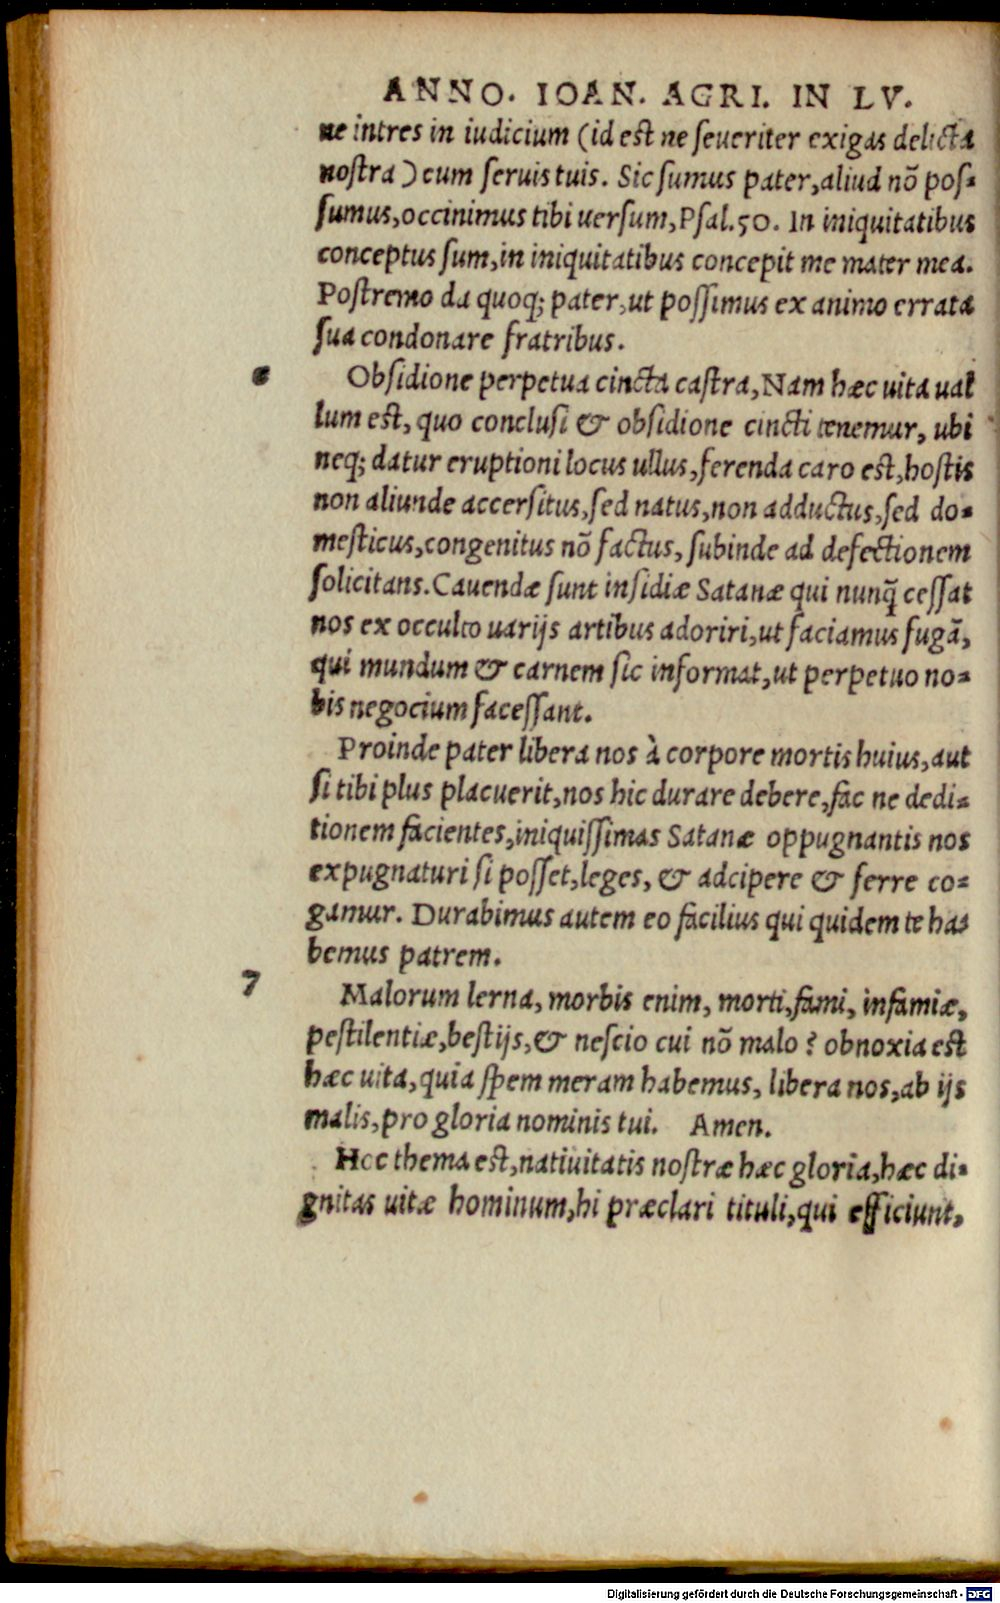 ANNO. IOAN. AGRI. IN LV.
ne intres in iudicium (id est ne ſeueriter exigas delicta
noſtra) cum ſeruis tuis. Sic ſumus pater, aliud nõ poſ-
ſumus, occinimus tibi uerſum, Pſal. 50. In iniquitatibus
conceptus ſum, in iniquitatibus concepit me mater mea.
Poſtremo da quoq; pater, ut poſſimus ex animo errata
ſua condonare fratribus.
Obſidione perpetua cincta caſtra, Nam hæc uita ual
lum est, quo concluſi & obſidione cincti tenemur, ubi
neq; datur eruptioni locus ullus, ferenda caro est, hoſtis
non aliunde accerſitus, ſed natus, non adductus, ſed do-
meſticus, congenitus nõ factus, ſubinde ad defectionem
ſolicitans. Cauendæ ſunt inſidiæ Satanæ qui nunq̃ ceſſat
nos ex occulto uarijs artibus adoriri, ut faciamus fugã,
qui mundum & carnem ſic informat, ut perpetuo no-
bis negocium faceſſant.
Proinde pater libera nos à corpore mortis huius, aut
ſi tibi plus placuerit, nos hic durare debere, fac ne dedi-
tionem facientes, iniquiſſimas Satanæ oppugnantis nos
expugnaturi ſi poſſet, leges, & adcipere & ferre co-
gamur. Durabimus autem eo facilius qui quidem te ha-
bemus patrem.
7
Malorum lerna, morbis enim, morti, fami, infamiæ,
peſtilentiæ, beſtijs, & neſcio cui nõ malo? obnoxia est
hæc uita, quia ſpem meram habemus, libera nos, ab ijs
malis, pro gloria nominis tui. Amen.
Hoc thema est, natiuitatis noſtræ hæc gloria, hæc di-
gnitas uitæ hominum, hi præclari tituli, qui efficiunt,
Digitalisierung gefördert durch die Deutsche Forschungsgemeinschaft - DFG